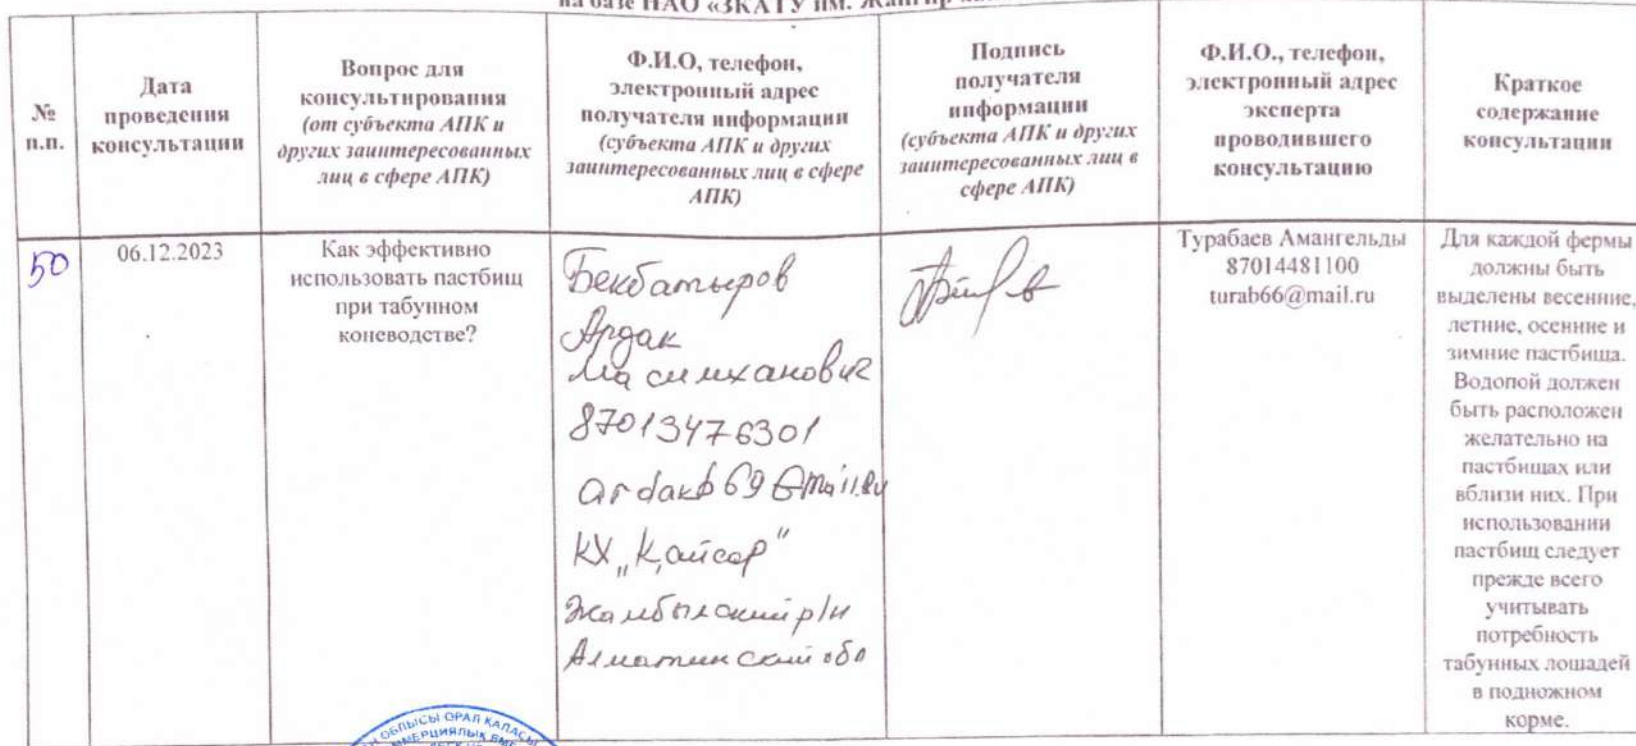 на базе НАО «ЗКАТУ им. Жангир
№
п.п.
Дата
проведения
консультации
Вопрос для
консультирования
(от субъекта АПК и
других заинтересованных
лиц в сфере АПК)
Ф.И.О, телефон,
электронный адрес
получателя информации
(субъекта АПК и других
заинтересованных лиц в сфере
АПК)
Подпись
получателя
информации
(субъекта АПК и других
заинтересованных лиц в
сфере АПК)
Ф.И.О., телефон,
электронный адрес
эксперта
проводившего
консультацию
Краткое
содержание
консультации
50
06.12.2023
Как эффективно
использовать пастбищ
при табунном
коневодстве?
Бекбатыров
Ардак
87013476301
ardakb69@mail.ru
КХ „Қайсар"
Жамбылский р/н
Алматинский обл
Турабаев Амангельды
87014481100
turab66@mail.ru
Для каждой фермы
должны быть
выделены весенние,
летние, осенние и
зимние пастбища.
Водопой должен
быть расположен
желательно на
пастбищах или
вблизи них. При
использовании
пастбищ следует
прежде всего
учитывать
потребность
табунных лошадей
в подножном
корме.
ОБЛЫСЫ ОРАЛ ҚАЛАСЫ